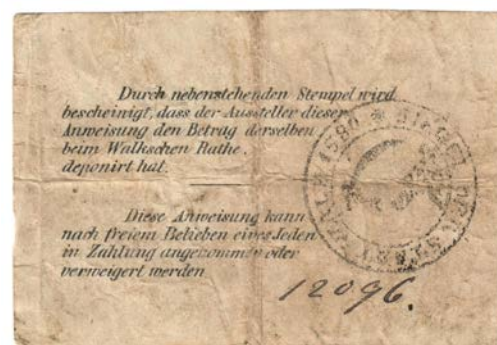 Durch nebenstehenden Stempel wird
bescheinigt, dass der Aussteller dieser
Anweisung den Betrag derselben
beim Walkschen Rathe.
deponirt hat.
Diese Anweisung kann
nach freiem Belieben eines Jeden
in Zahlung angenommen oder
verweigert werden
SIEGEL DER STADT WALK 1590
12096.